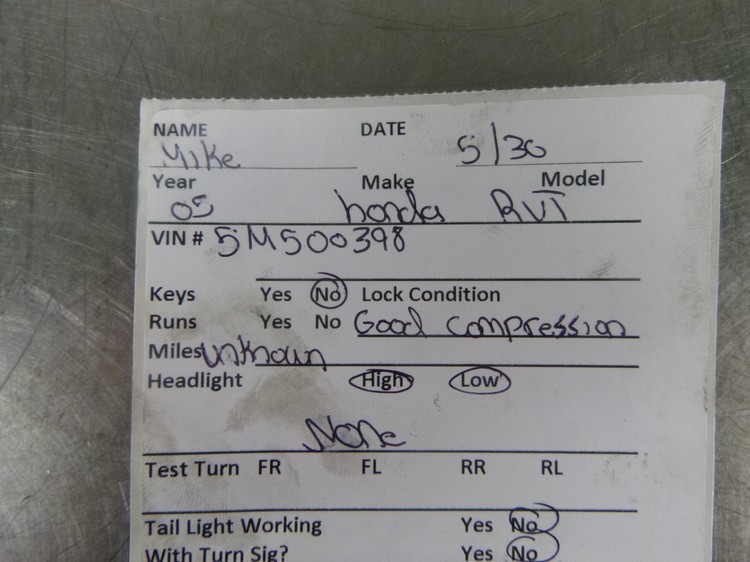 NAME DATE
Mike 5/30
Year Make Model
05 honda RVT
VIN # 5M500398
Keys Yes No Lock Condition
Runs Yes No Good compression
Miles unknown
Headlight High Low
None
Test Turn FR FL RR RL
Tail Light Working Yes No
With Turn Sig? Yes No